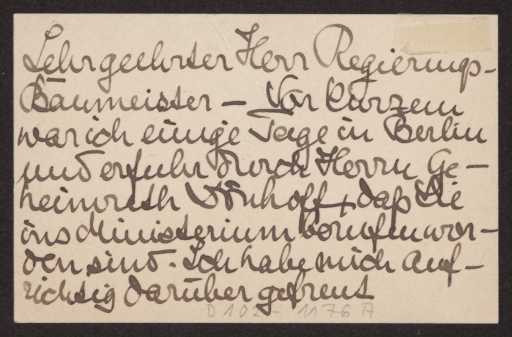 Sehrgeehrter Herr Regierungs-
Baumeister – Vor Kurzem
war ich einige Tage in Berlin
und erfuhr durch Herrn Ge-
heimrath Dönhoff, daß Sie
ins Ministerium berufen wor-
den sind. Ich habe mich auf-
richtig darüber gefreut
D 102 - 1176 A